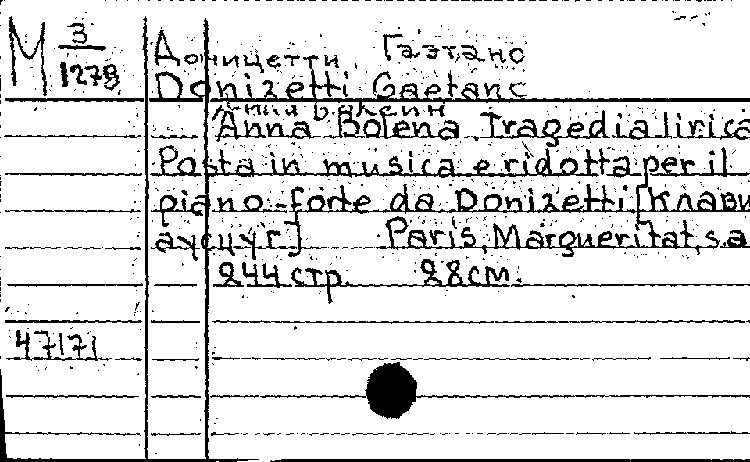 М 3/1278
Доницетти Гаэтано
Donizetti Gaetano
Анна Болейн
Anna Bolena. Tragedia lirica
Posta in musica e ridotta per il
piano-forte da Donizetti [Клави
аусцуг] Paris, Margueritat, s.a
244 стр. 28 см.
47171